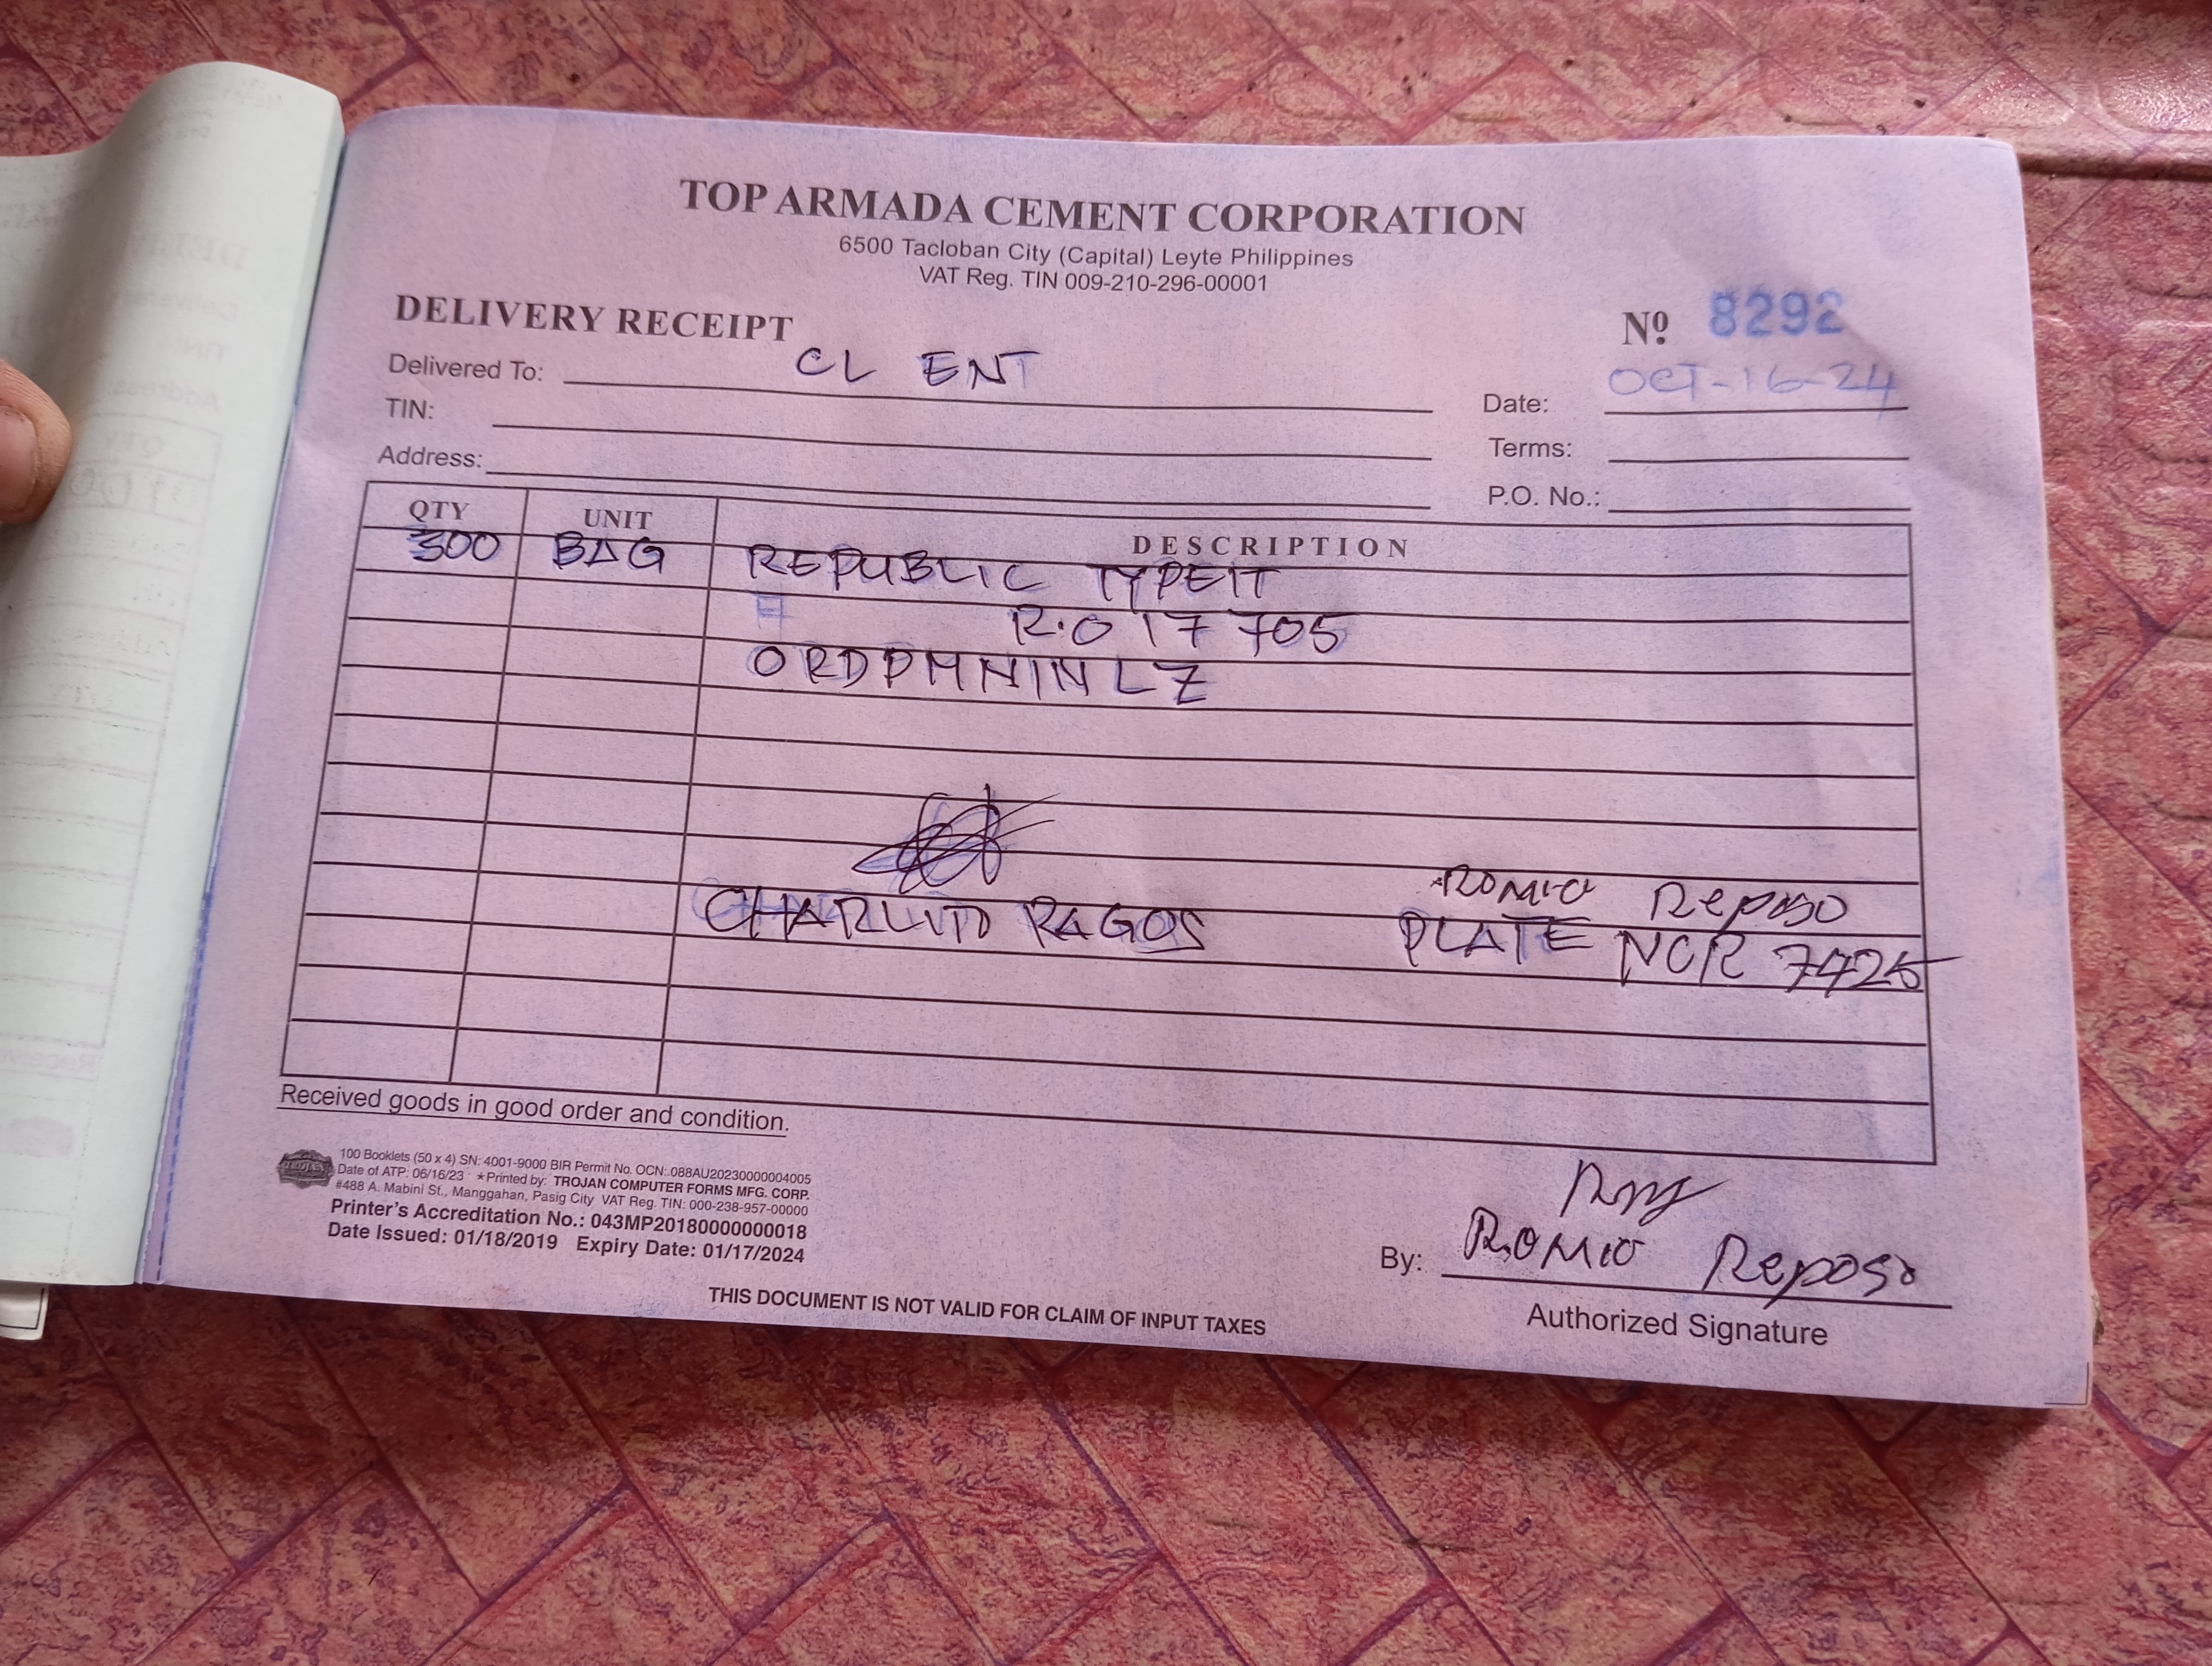 TOP ARMADA CEMENT CORPORATION
6500 Tacloban City (Capital) Leyte Philippines
VAT Reg. TIN 009-210-296-00001
DELIVERY RECEIPT
Nº 8292
Delivered To: CL ENT
Date: OCT-16-24
TIN:
Terms:
Address:
P.O. No.:
QTY UNIT DESCRIPTION
300 BAG REPUBLIC TYPE1T
R.O 17705
ORDPMNINLZ
ROMIO Reposo
CHARLITO RAGOS PLATE NCR 7425
Received goods in good order and condition.
100 Booklets (50 x 4) SN: 4001-9000 BIR Permit No. OCN:.088AU20230000004005
Date of ATP: 06/16/23 *Printed by: TROJAN COMPUTER FORMS MFG. CORP.
#488 A. Mabini St., Manggahan, Pasig City VAT Reg. TIN: 000-238-957-00000
Printer's Accreditation No.: 043MP20180000000018
Date Issued: 01/18/2019 Expiry Date: 01/17/2024
By: ROMIO Reposo
Authorized Signature
THIS DOCUMENT IS NOT VALID FOR CLAIM OF INPUT TAXES